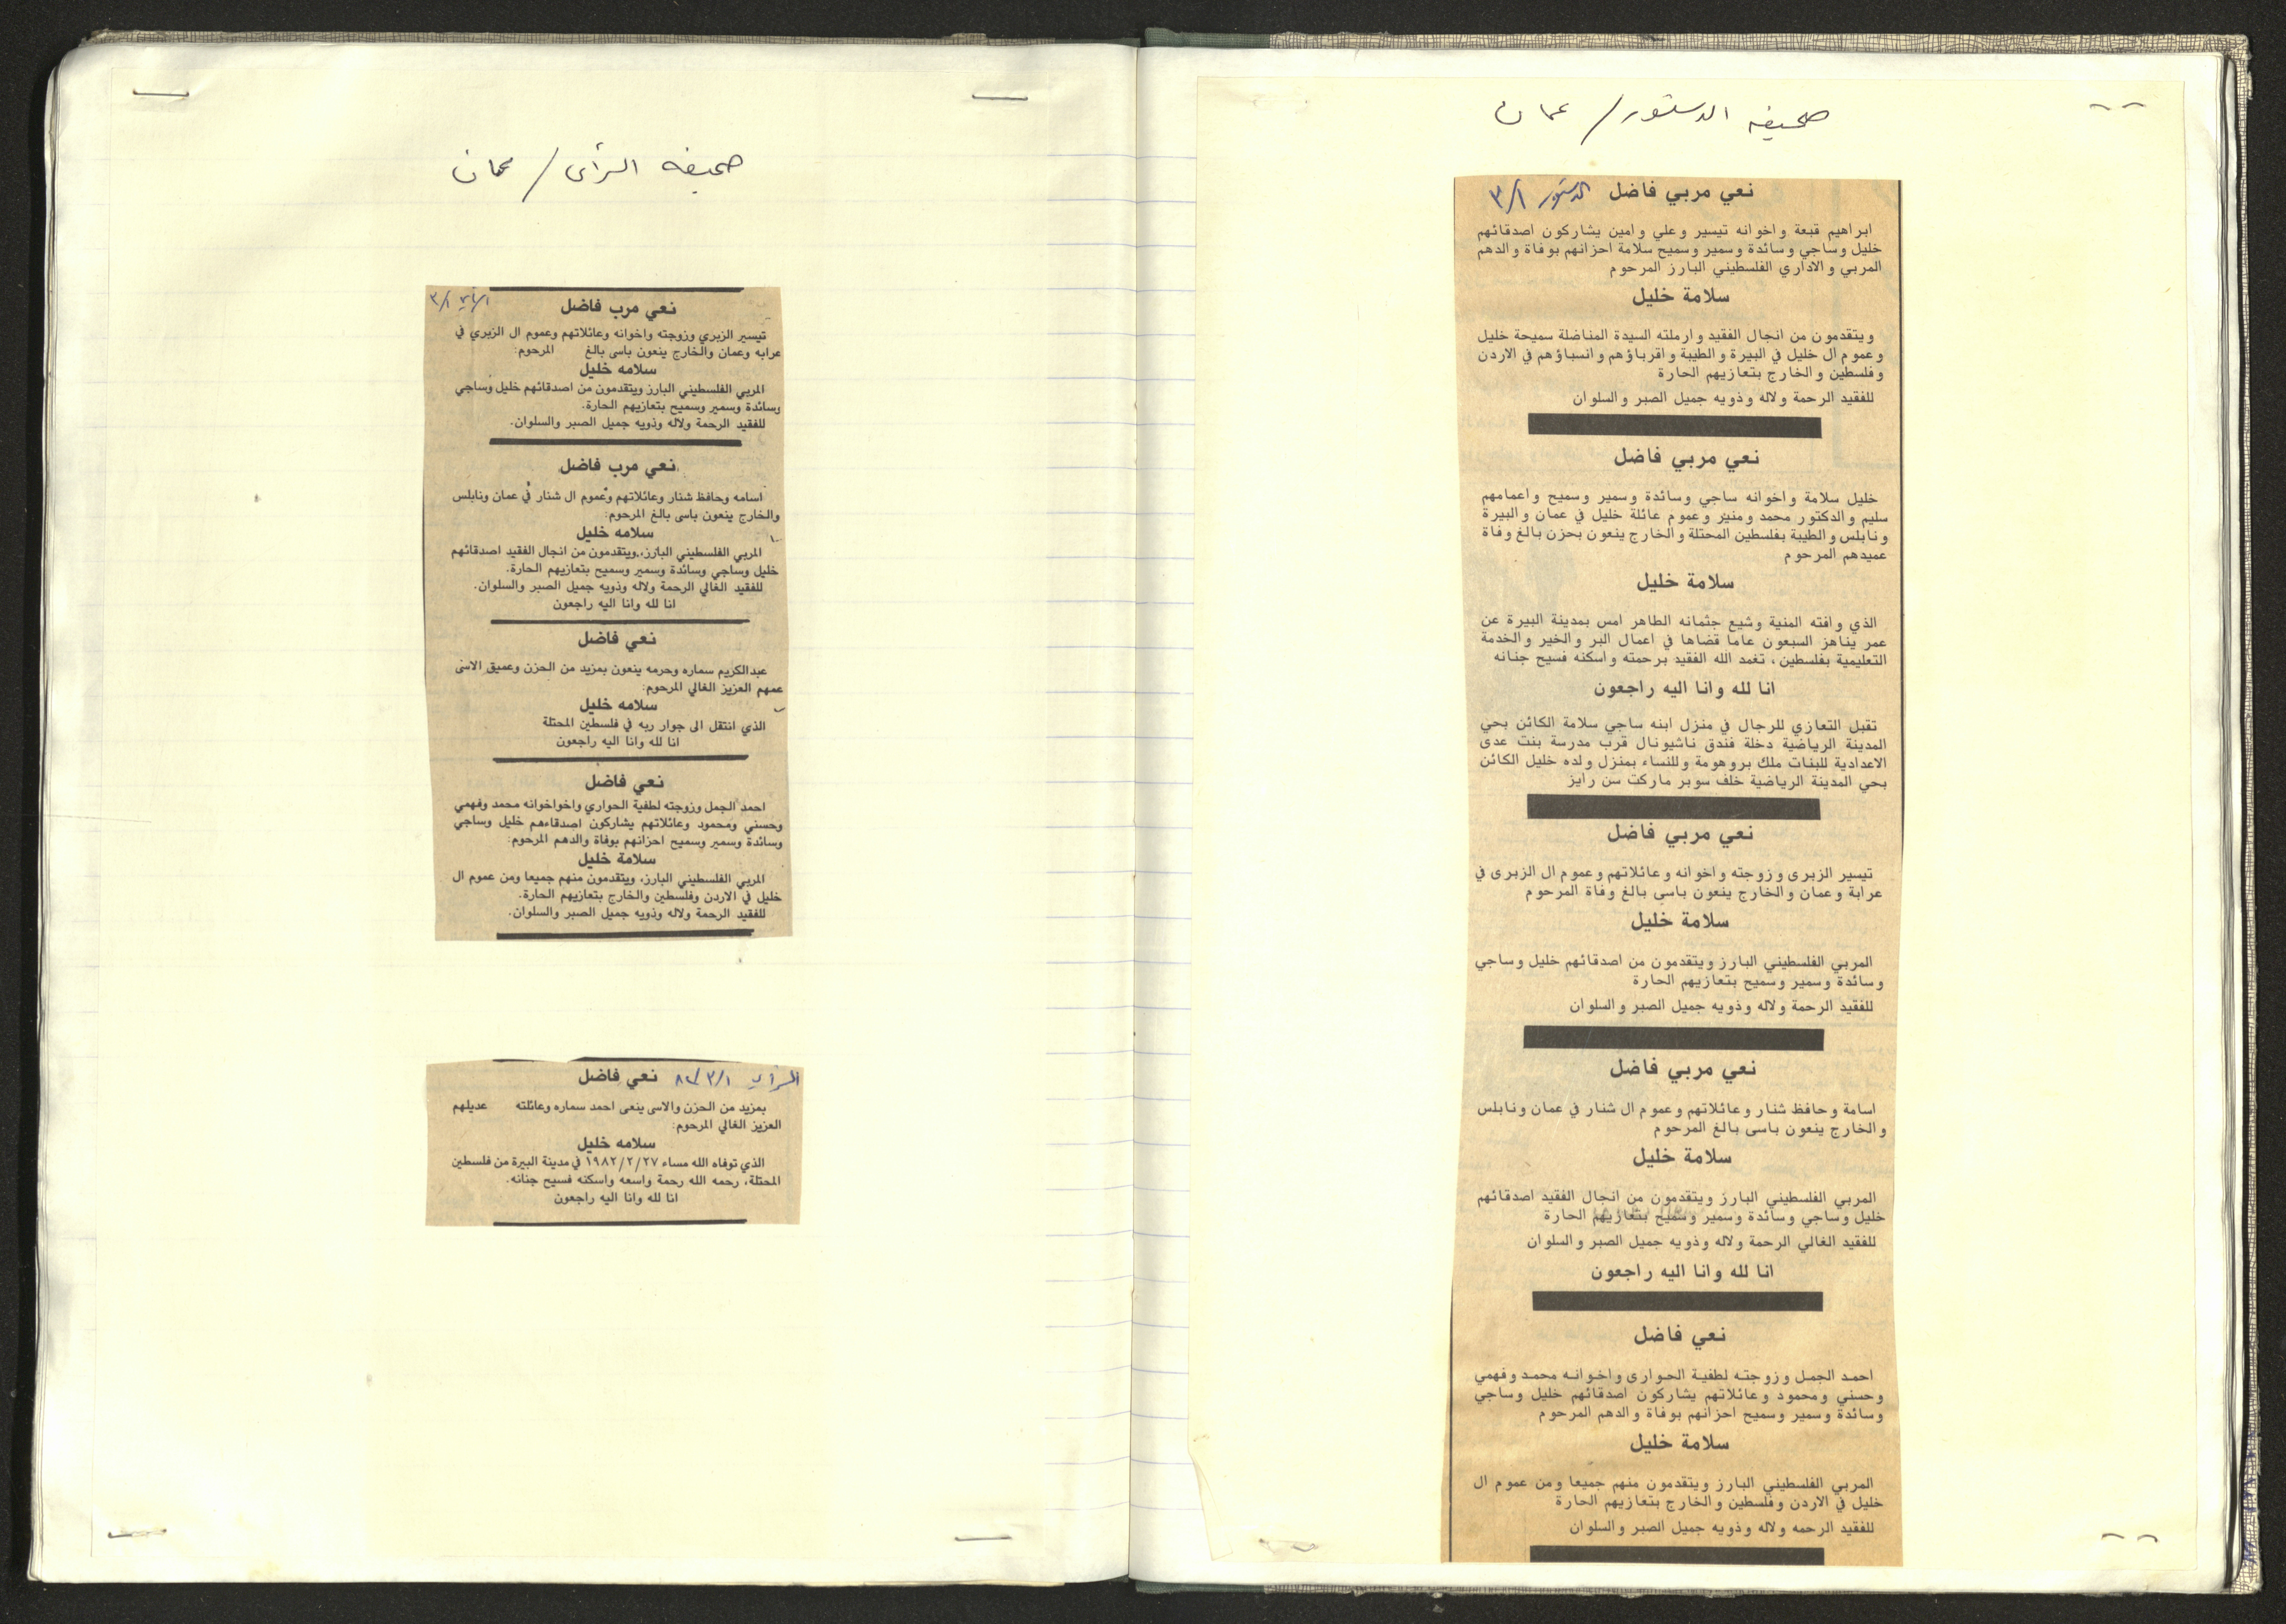 صحيفه الدستور / عمان
نعي مربي فاضل الدستور ٣/١
ابراهيم قبعة واخوانه تيسير وعلي وامين يشاركون اصدقائهم
خليل وساجي وسائدة وسمير وسميح سلامة احزانهم بوفاة والدهم
المربي والاداري الفلسطيني البارز المرحوم
سلامة خليل
ويتقدمون من انجال الفقيد وارملته السيدة المناضلة سميحة خليل
وعموم ال خليل في البيرة والطيبة واقرباؤهم وانسباؤهم في الاردن
وفلسطين والخارج بتعازيهم الحارة
للفقيد الرحمة ولاله وذويه جميل الصبر والسلوان
نعي مربي فاضل
خليل سلامة واخوانه ساجي وسائدة وسمير وسميح واعمامهم
سليم والدكتور محمد ومنير وعموم عائلة خليل في عمان والبيرة
ونابلس والطيبة بفلسطين المحتلة والخارج ينعون بحزن بالغ وفاة
عميدهم المرحوم
سلامة خليل
الذي وافته المنية وشيع جثمانه الطاهر امس بمدينة البيرة عن
عمر يناهز السبعون عاما قضاها في اعمال البر والخير والخدمة
التعليمية بفلسطين ، تغمد الله الفقيد برحمته واسكنه فسيح جنانه
انا لله وانا اليه راجعون
تقبل التعازي للرجال في منزل ابنه ساجي سلامة الكائن بحي
المدينة الرياضية دخلة فندق ناشيونال قرب مدرسة بنت عدى
الاعدادية للبنات ملك بروهومة وللنساء بمنزل ولده خليل الكائن
بحي المدينة الرياضية خلف سوبر ماركت سن رايز
نعي مربي فاضل
تيسير الزبرى وزوجته واخوانه وعائلاتهم وعموم ال الزبرى في
عرابة وعمان والخارج ينعون باسى بالغ وفاة المرحوم
سلامة خليل
المربي الفلسطيني البارز ويتقدمون من اصدقائهم خليل وساجي
وسائدة وسمير وسميح بتعازيهم الحارة
للفقيد الرحمة ولاله وذويه جميل الصبر والسلوان
نعي مربي فاضل
اسامة وحافظ شنار وعائلاتهم وعموم ال شنار في عمان ونابلس
والخارج ينعون باسى بالغ المرحوم
سلامة خليل
المربي الفلسطيني البارز ويتقدمون من انجال الفقيد اصدقائهم
خليل وساجي وسائدة وسمير وسميح بتعازيهم الحارة
للفقيد الغالي الرحمة ولاله وذويه جميل الصبر والسلوان
انا لله وانا اليه راجعون
نعي فاضل
احمد الجمل وزوجته لطفية الحوارى واخوانه محمد وفهمي
وحسني ومحمود وعائلاتهم يشاركون اصدقائهم خليل وساجي
وسائدة وسمير وسميح احزانهم بوفاة والدهم المرحوم
سلامة خليل
المربي الفلسطيني البارز ويتقدمون منهم جميعا ومن عموم ال
خليل في الاردن وفلسطين والخارج بتعازيهم الحارة
للفقيد الرحمه ولاله وذويه جميل الصبر والسلوان
صحيفه الرأى / عمان
نعي مرب فاضل
تيسير الزبري وزوجته واخوانه وعائلاتهم وعموم ال الزبري في
عرابه وعمان والخارج ينعون باسى بالغ المرحوم:
سلامه خليل
المربي الفلسطيني البارز ويتقدمون من اصدقائهم خليل وساجي
وسائدة وسمير وسميح بتعازيهم الحارة.
للفقيد الرحمة ولاله وذويه جميل الصبر والسلوان.
نعي مرب فاضل
اسامه وحافظ شنار وعائلاتهم وعموم ال شنار في عمان ونابلس
والخارج ينعون باسى بالغ المرحوم:
سلامه خليل
المربي الفلسطيني البارز، ويتقدمون من انجال الفقيد اصدقائهم
خليل وساجي وسائدة وسمير وسميح بتعازيهم الحارة.
للفقيد الغالي الرحمة ولاله وذويه جميل الصبر والسلوان.
انا لله وانا اليه راجعون
نعي فاضل
عبدالكريم سماره وحرمه ينعون بمزيد من الحزن وعميق الاسى
عمهم العزيز الغالي المرحوم:
سلامه خليل
الذي انتقل الى جوار ربه في فلسطين المحتلة
انا لله وانا اليه راجعون
نعي فاضل
احمد الجمل وزوجته لطفية الحواري واخواخوانه محمد وفهمي
وحسني ومحمود وعائلاتهم يشاركون اصدقاءهم خليل وساجي
وسائدة وسمير وسميح احزانهم بوفاة والدهم المرحوم:
سلامة خليل
المربي الفلسطيني البارز، ويتقدمون منهم جميعا ومن عموم ال
خليل في الاردن وفلسطين والخارج بتعازيهم الحارة.
للفقيد الرحمة ولاله وذويه جميل الصبر والسلوان.
الرأي ٨٢/٣/١ نعي فاضل
بمزيد من الحزن والاسى ينعى احمد سماره وعائلته عديلهم
العزيز الغالي المرحوم:
سلامه خليل
الذي توفاه الله مساء ١٩٨٢/٢/٢٧ في مدينة البيرة من فلسطين
المحتلة، رحمه الله رحمة واسعه واسكنه فسيح جنانه.
انا لله وانا اليه راجعون